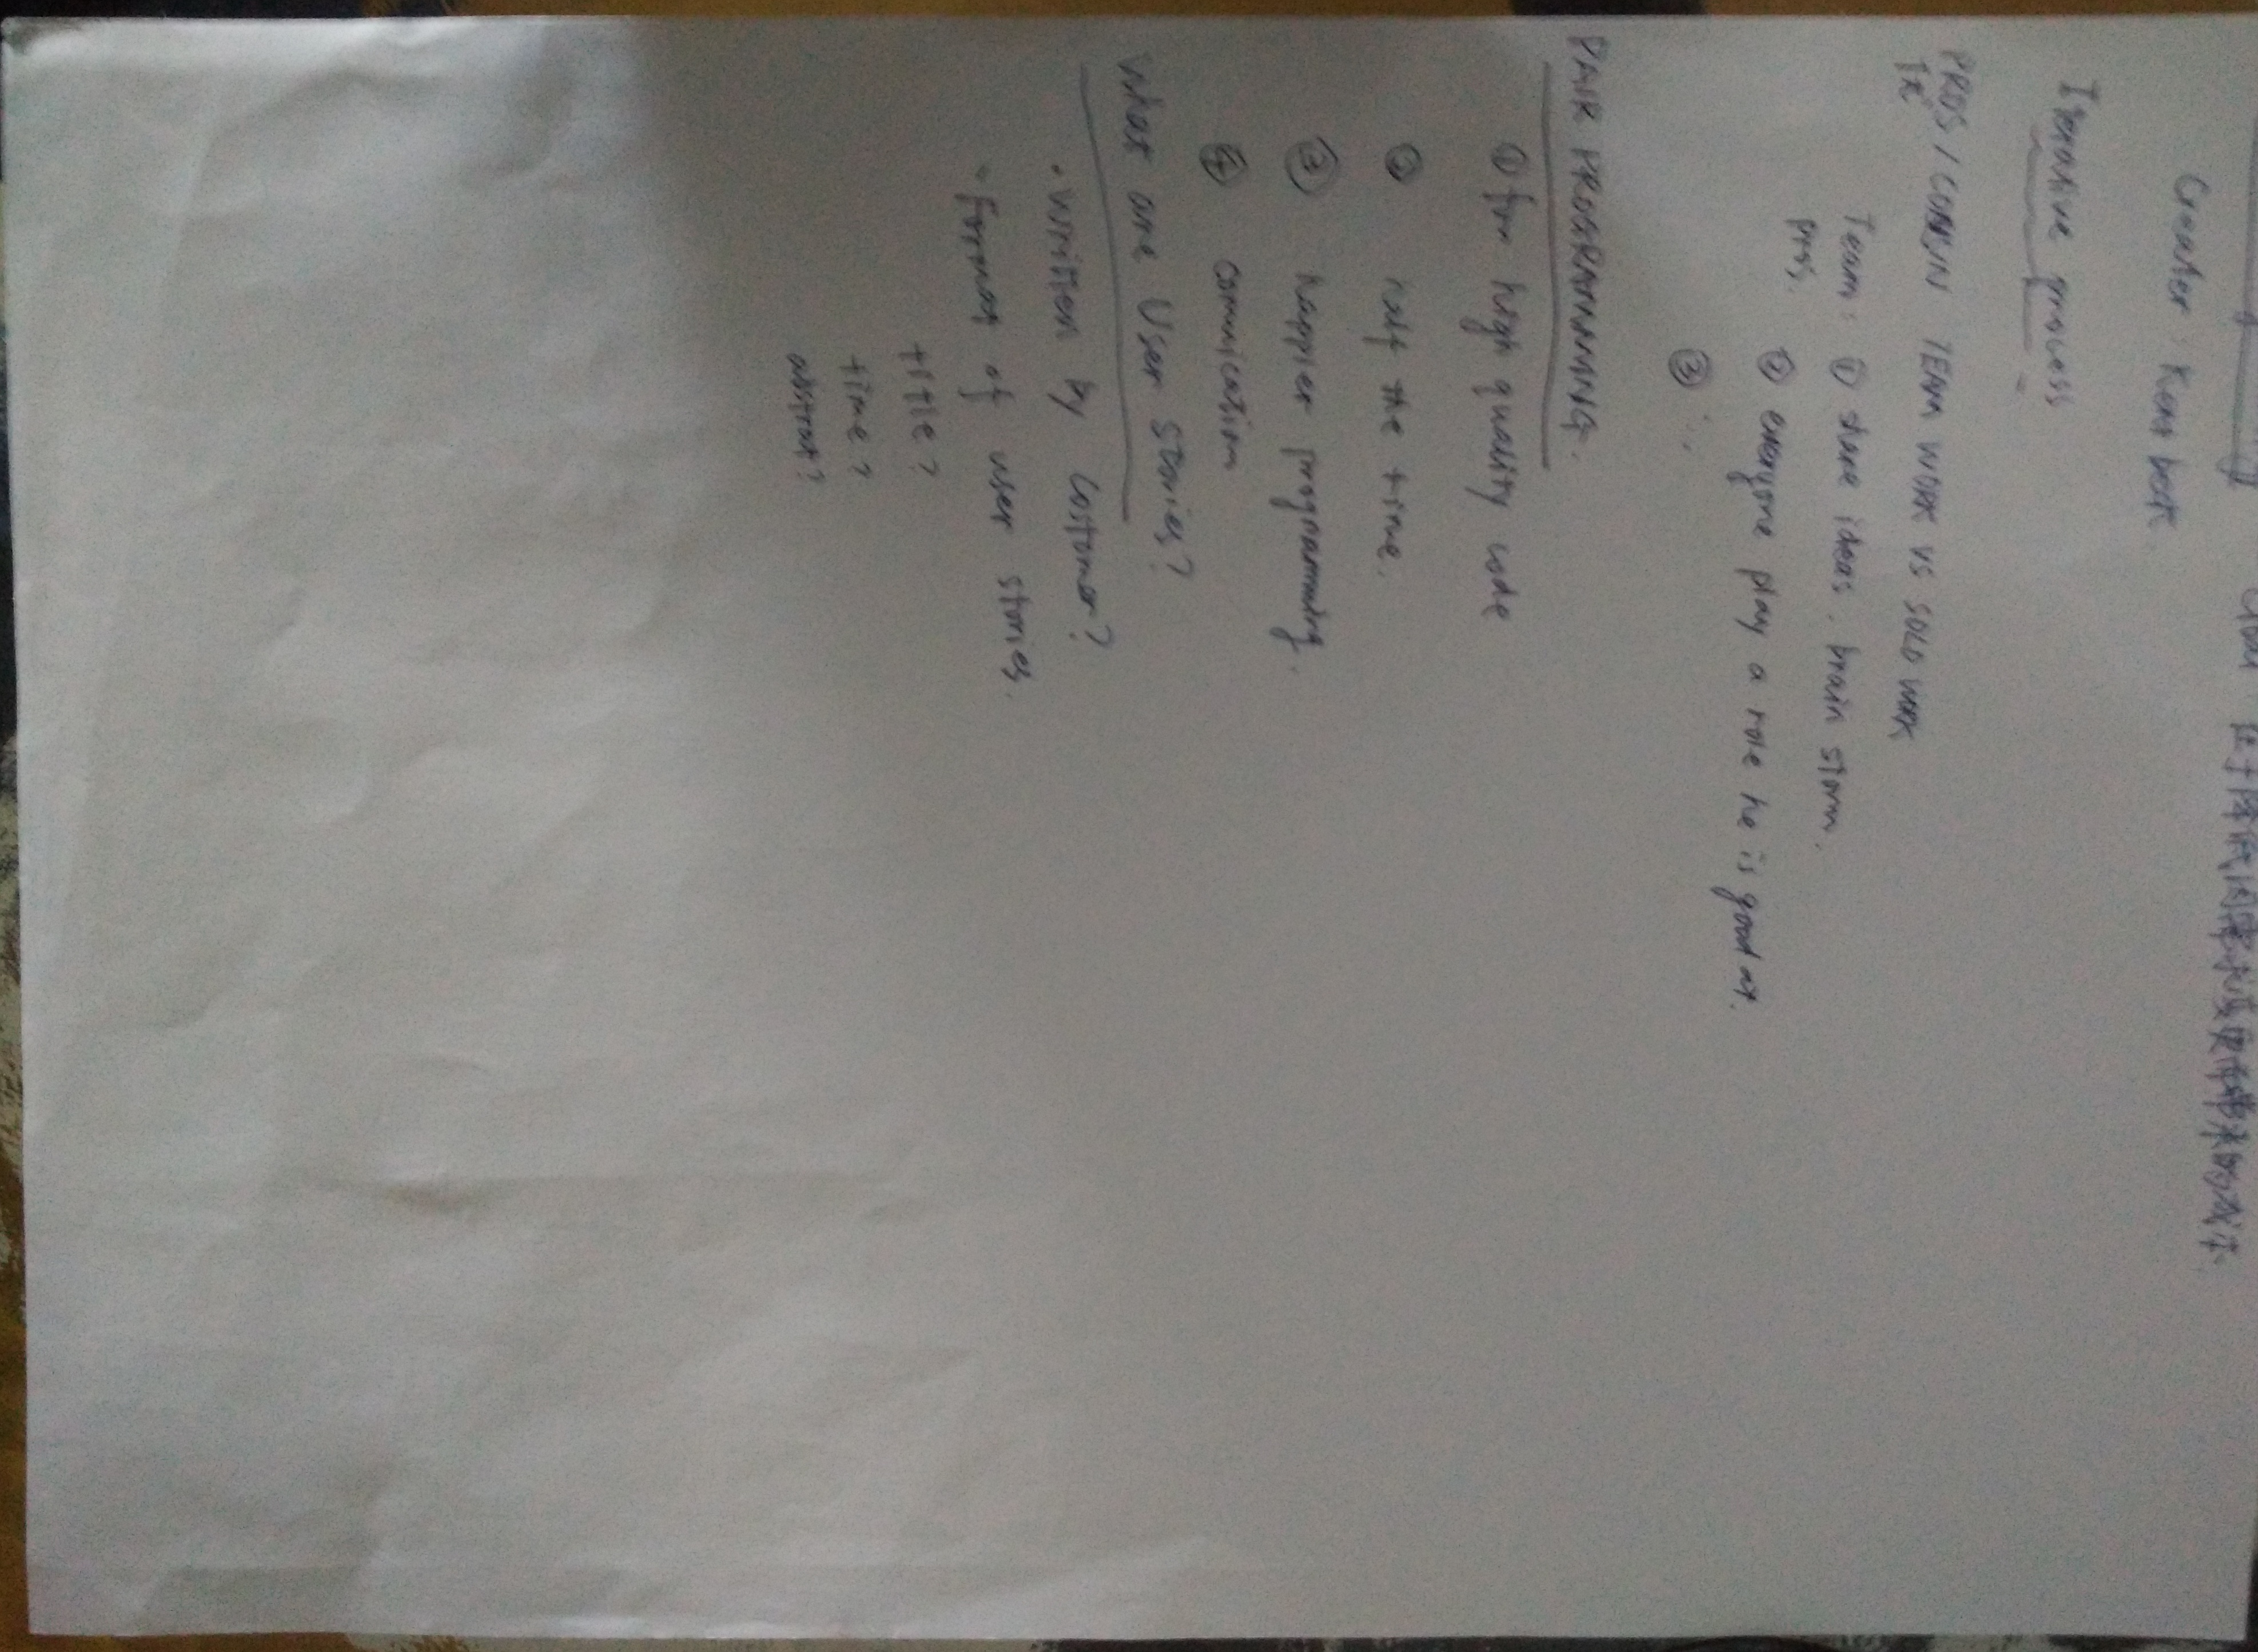 Goal 在于降低因需求变更而带来的成本
Creater: Kent beck.
Iterative process
PROS / CON IN TEAM WORK VS SOLO WORK
Team: ① share ideas, brain storm.
pros, ② everyone play a role he is good at.
③ ...
PAIR PROGRAMMING.
① for high quality code
② half the time.
③ happier programming.
④ communication
What are User stories?
• written by customer?
• Format of user stories.
title?
time?
abstract?